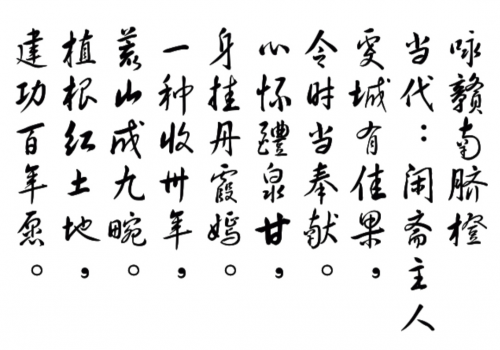 咏赣南脐橙
当代：闲斋主人
虔城有佳果，
令时当奉献。
心怀醴泉甘，
身挂丹霞嫣。
一种收卅年，
荒山成九畹。
植根红土地，
建功百年愿。